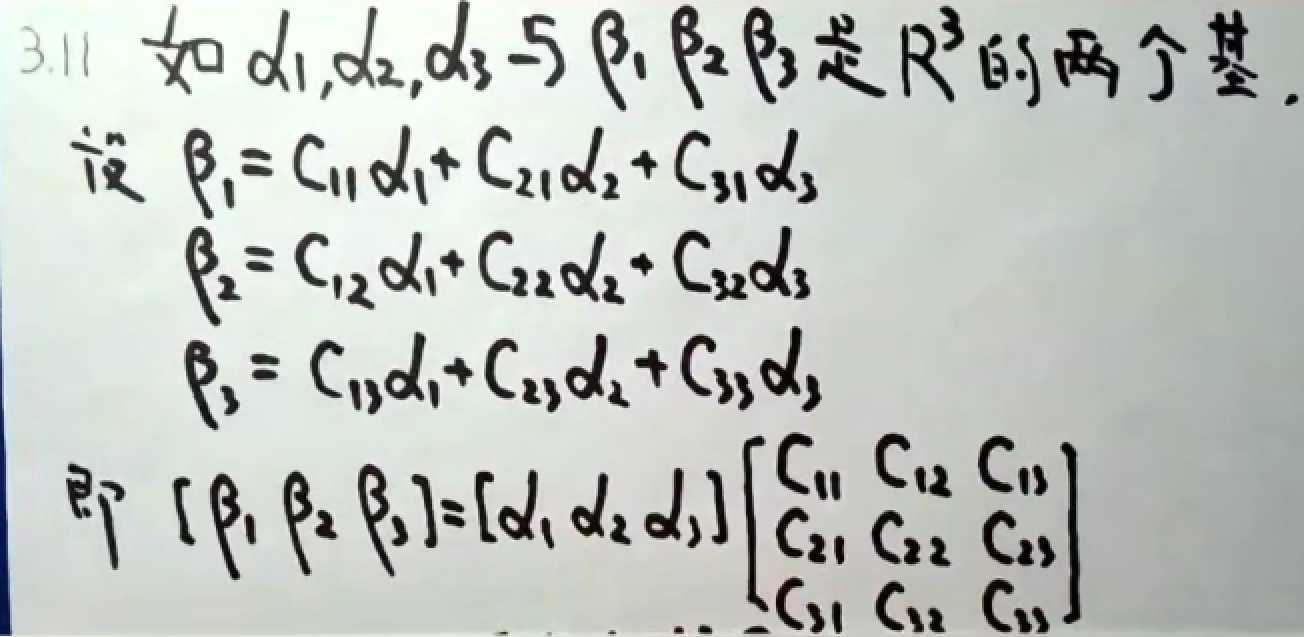 3.11 如 α₁,α₂,α₃与 β₁ β₂ β₃是 R³的两个基.
设 β₁= C₁₁α₁+ C₂₁α₂+ C₃₁α₃
β₂= C₁₂α₁+ C₂₂α₂+ C₃₂α₃
β₃= C₁₃α₁+ C₂₃α₂+ C₃₃α₃
即 [β₁ β₂ β₃]=[α₁ α₂ α₃] [C₁₁ C₁₂ C₁₃
C₂₁ C₂₂ C₂₃
C₃₁ C₃₂ C₃₃]